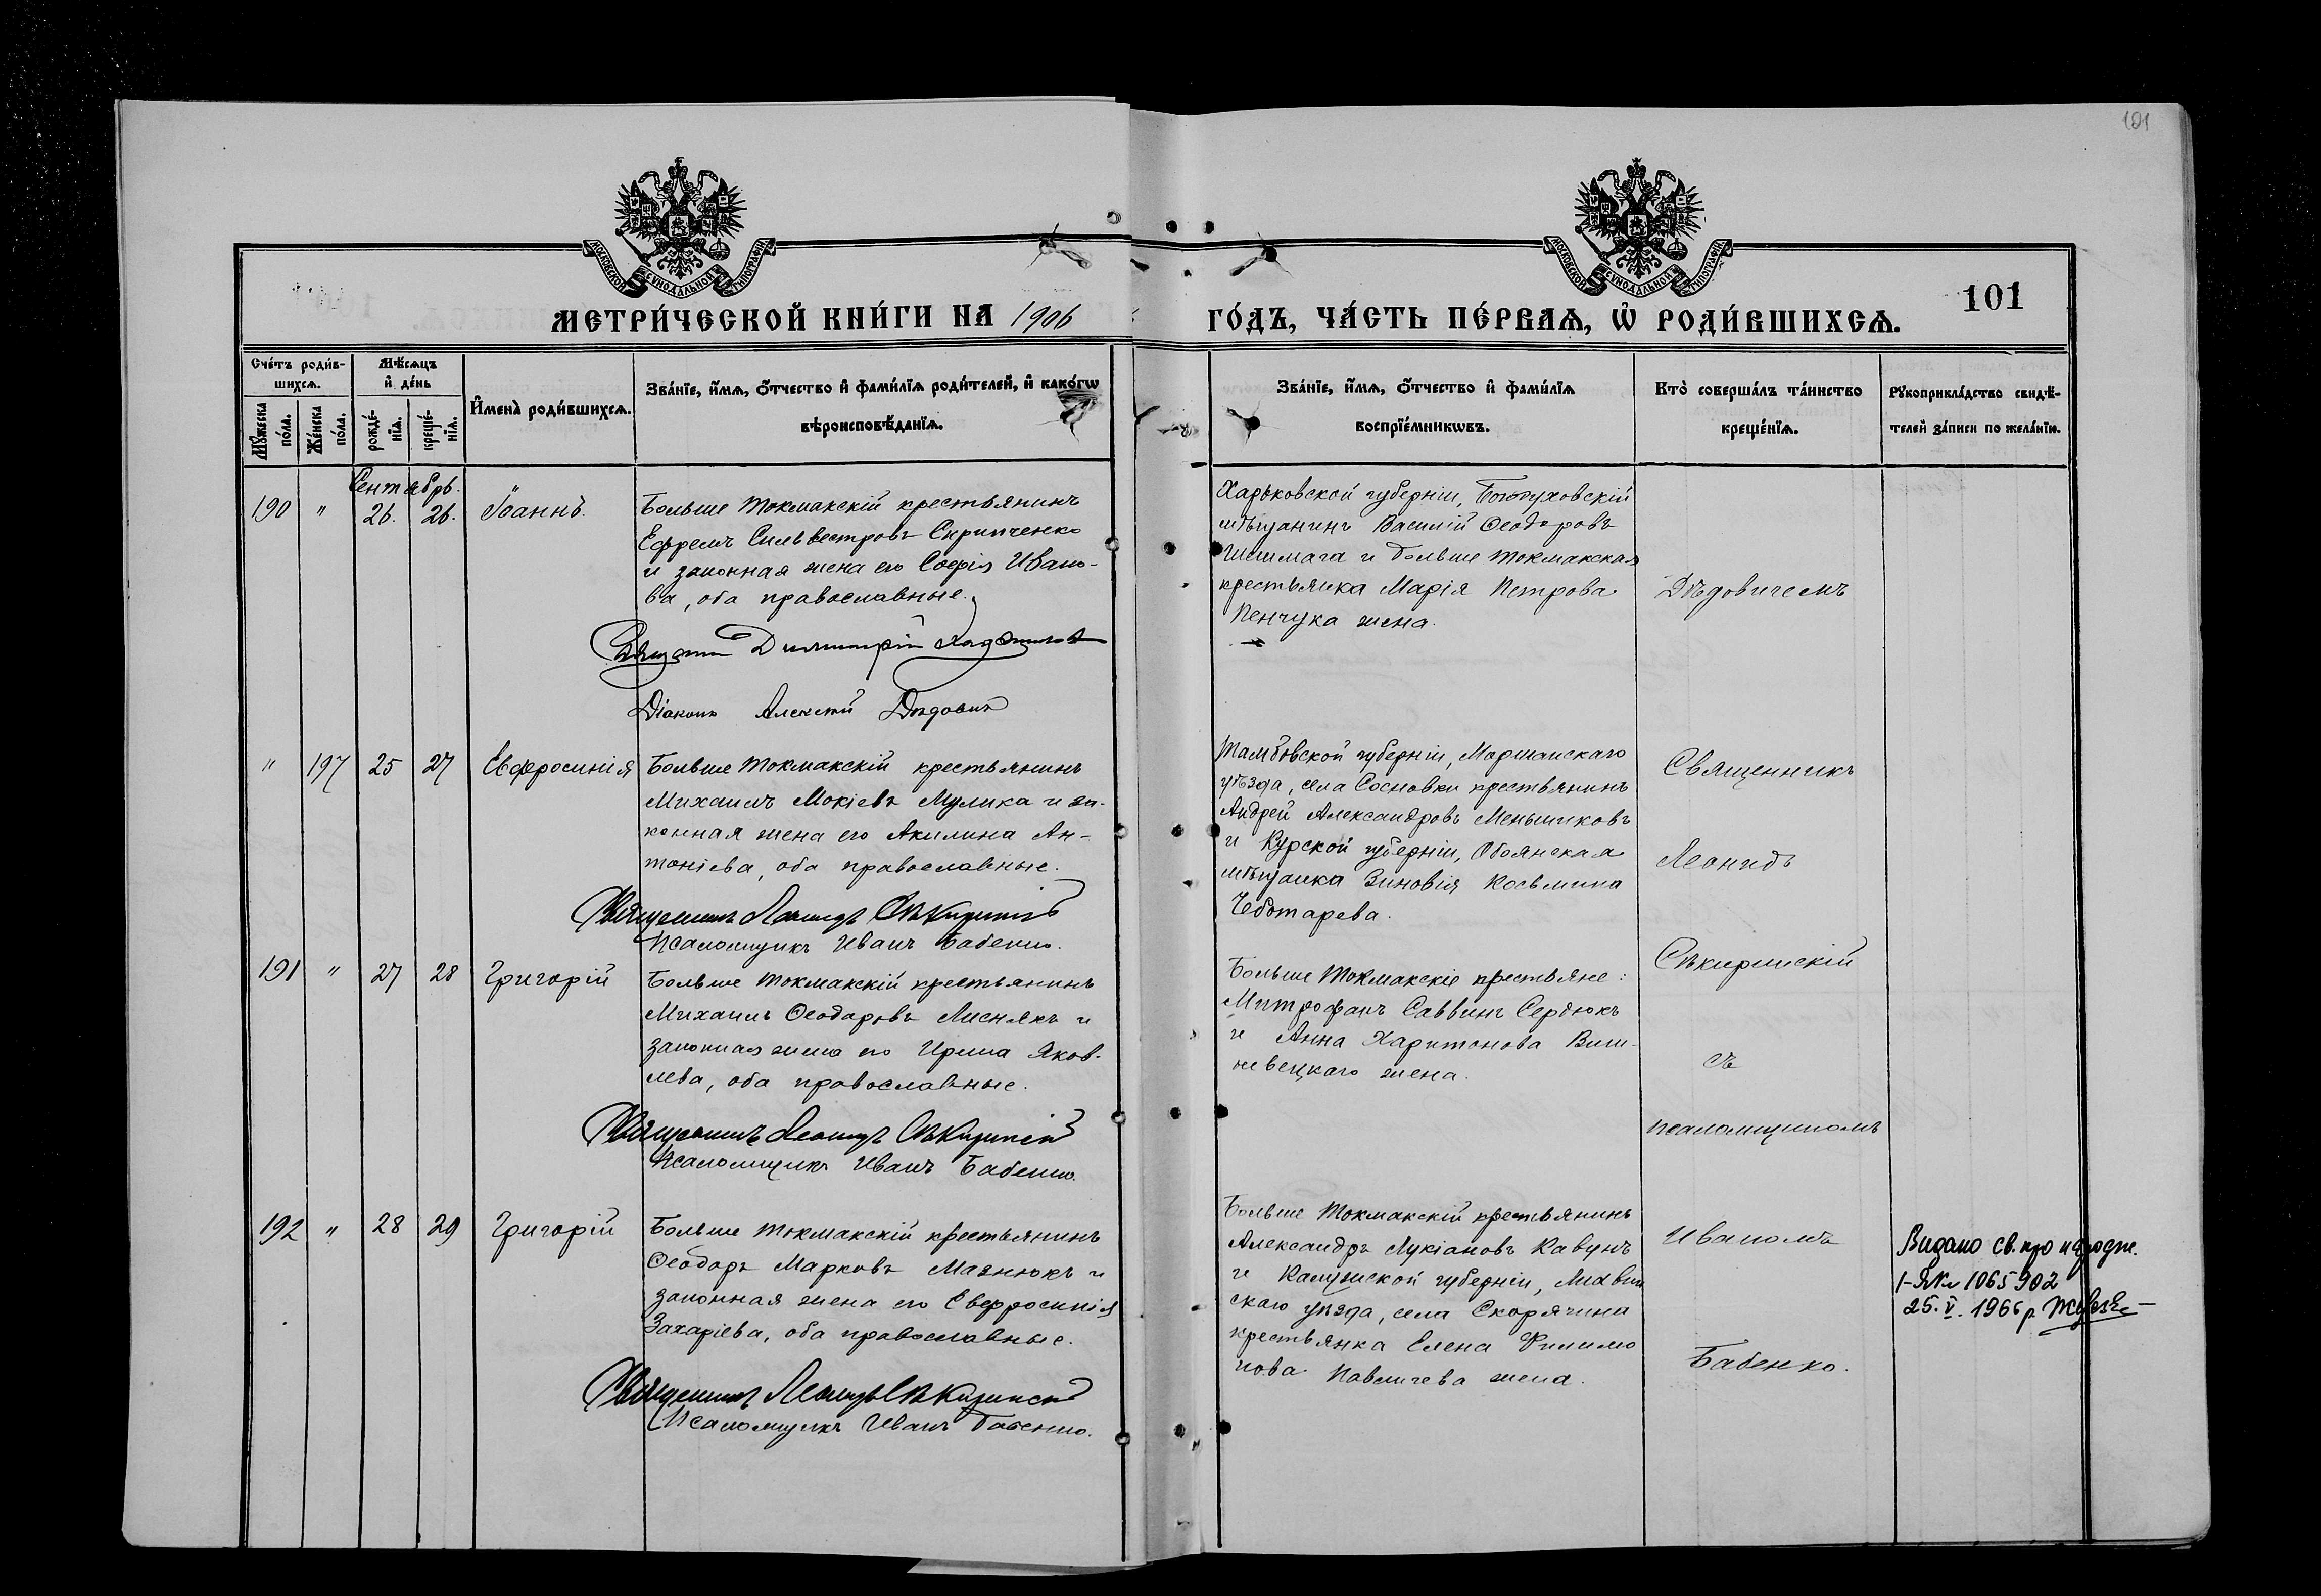 101
МОСКОВСКОЙ СѴНОДАЛЬНОЙ ТИПОГРАФІИ
МОСКОВСКОЙ СѴНОДАЛЬНОЙ ТИПОГРАФІИ
МЕТРИ́ЧЕСКОЙ КНИ́ГИ НА 1906
ГО́ДЪ, ЧА́СТЬ ПЕ́РВАѦ, Ѡ҆ РОДИ́ВШИХСѦ.
101
Сче́тъ роди́в-
шихсѧ.
Мѣ́сѧцъ
и҆ де́нь
Мꙋ́жеска
по́ла.
Же́нска
по́ла.
рожде́-
нїѧ.
креще́-
нїѧ.
И҆мена̀ роди́вшихсѧ.
Зва́нїе, и҆́мѧ, ѻ҆́тчество и҆ фамы́лїѧ роди́телей, и҆ како́гѡ
вѣроисповѣ́данїѧ.
Зва́нїе, и҆́мѧ, ѻ҆́тчество и҆ фами́лїѧ
воспрїе́мникѡвъ.
Кто̀ соверша́лъ та́инство
креще́нїѧ.
Рꙋкоприкла́дство свидѣ́-
телей за́писи по жела́нїю.
Сентябрь.
190 " 26. 26. Іоаннъ.
Больше Токмакскій крестьянинъ
Ефремъ Сильвестровъ Скрипченко
и законная жена его Софія Ивано-
ва, оба православные.
Димитрій
Діаконъ Алексій Дѣдовичъ
Харьковской губерніи, Богодуховскій
мѣщанинъ Василій Ѳеодоровъ
и больше Токмакская
крестьянка Марія Петрова
Пенчука жена.
Дѣдовичемъ
" 197 25 27 Евфросинія
Больше Токмакскій крестьянинъ
Михаилъ Мокіевъ Мулика и за-
конная жена его Акилина Ан-
тоніева, оба православные.
Священникъ Леонидъ Сѣкиринскій
Псаломщикъ Иванъ Бабенко.
Тамбовской губерніи, Моршанскаго
уѣзда, села Сосновки крестьянинъ
Андрей Александровъ Меньшиковъ
и Курской губерніи, Обоянская
мѣщанка Зиновія Косьмина
Чеботарева.
Священникъ
Леонидъ
Сѣкиринскій
съ
псаломщикомъ
Иваномъ
Бабенко.
191 " 27 28 Григорій
Больше Токмакскій крестьянинъ
Михаилъ Ѳеодоровъ Лиснякъ и
законная жена его Ирина Яков-
лева, оба православные.
Священникъ Леонидъ Сѣкиринскій
Псаломщикъ Иванъ Бабенко.
Больше Токмакскіе крестьяне:
Митрофанъ Саввинъ Сердюкъ
и Анна Харитонова Виш-
невецкаго жена.
192 " 28 29 Григорій
Больше Токмакскій крестьянинъ
Ѳеодоръ Марковъ Мазнюкъ и
законная жена его Евфросинія
Захаріева, оба православные.
Священникъ Леонидъ Сѣкиринскій
Псаломщикъ Иванъ Бабенко.
Больше Токмакскій крестьянинъ
Александръ Лукіановъ Кавунъ
и Калужской губерніи, Лихвин
скаго уѣзда, села Скорячина
крестьянка Елена Филимо
нова Павличева жена.
Видано св. про народж.
1065902
25.V.1966 р.